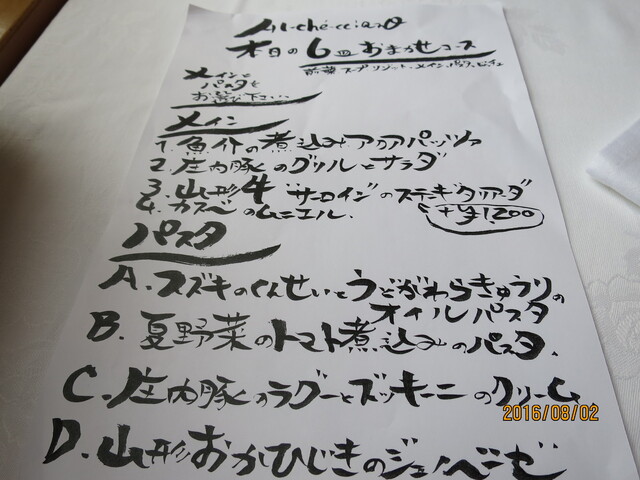 Al-ché-cciano
本日の6皿おまかせコース
前菜、スープ、リゾット、メイン、パスタ、ドルチェ
メインと
パスタを
お選び下さい。
メイン
1. 魚介の煮込みアクアパッツァ
2. 庄内豚のグリルとサラダ
3. 山形牛"サーロイン"のステーキタリアータ
+¥1,200
4. カスベのムニエル.
パスタ
A. スズキのくんせいとうどがわらきゅうりの
オイルパスタ
B. 夏野菜のトマト煮込みのパスタ.
C. 庄内豚のラグーとズッキーニのクリーム.
D. 山形おかひじきのジェノベーゼ
2016/08/02